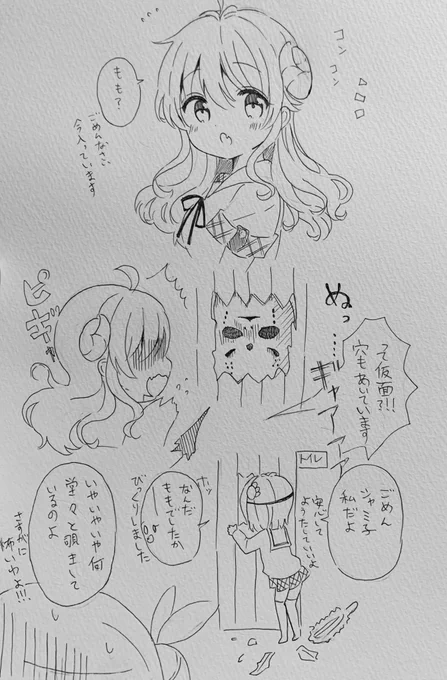 コン
コン
もも?
ごめんなさい
今入っています
ピギャ
ぬっ
……
ギャアアア
って仮面?!!
穴もあいています
トイレ
ごめん
シャミ子
私だよ
安心して
ようたしていいよ
ホッ
なんだ
ももでしたか
びっくりしました
いやいやいや何
堂々と覗きして
いるのよ
さすがに
怖いわよ!!!